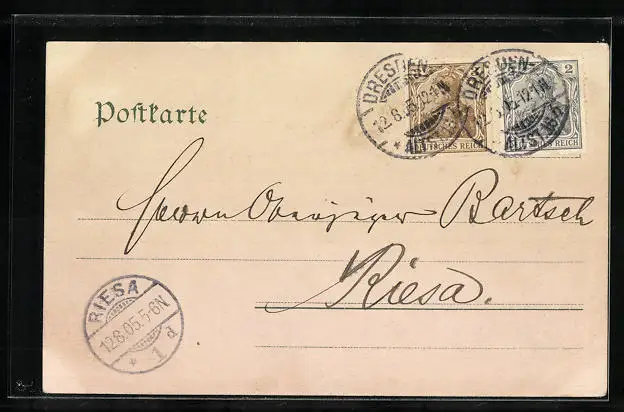 Postkarte
DRESDEN-
12.8.05.12-1N
* ALTST.
DRESDEN-
12.8.05.12-1N
ALTST.
DEUTSCHES REICH
2
DEUTSCHES REICH
Herrn Oberjäger Bartsch
Riesa.
RIESA
12.8.05.5-6N
* 1 d